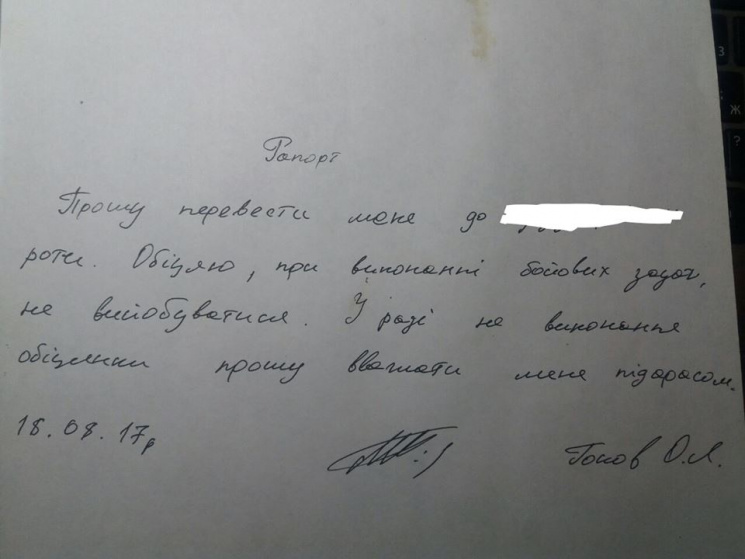 Рапорт
Прошу перевести мене до
роти. Обіцяю, при виконанні бойових задач,
не вийобуватися. У разі не виконання
обіцянки прошу вважати мене підарасом.
18.08.17р О.Л.
З
Ж
?